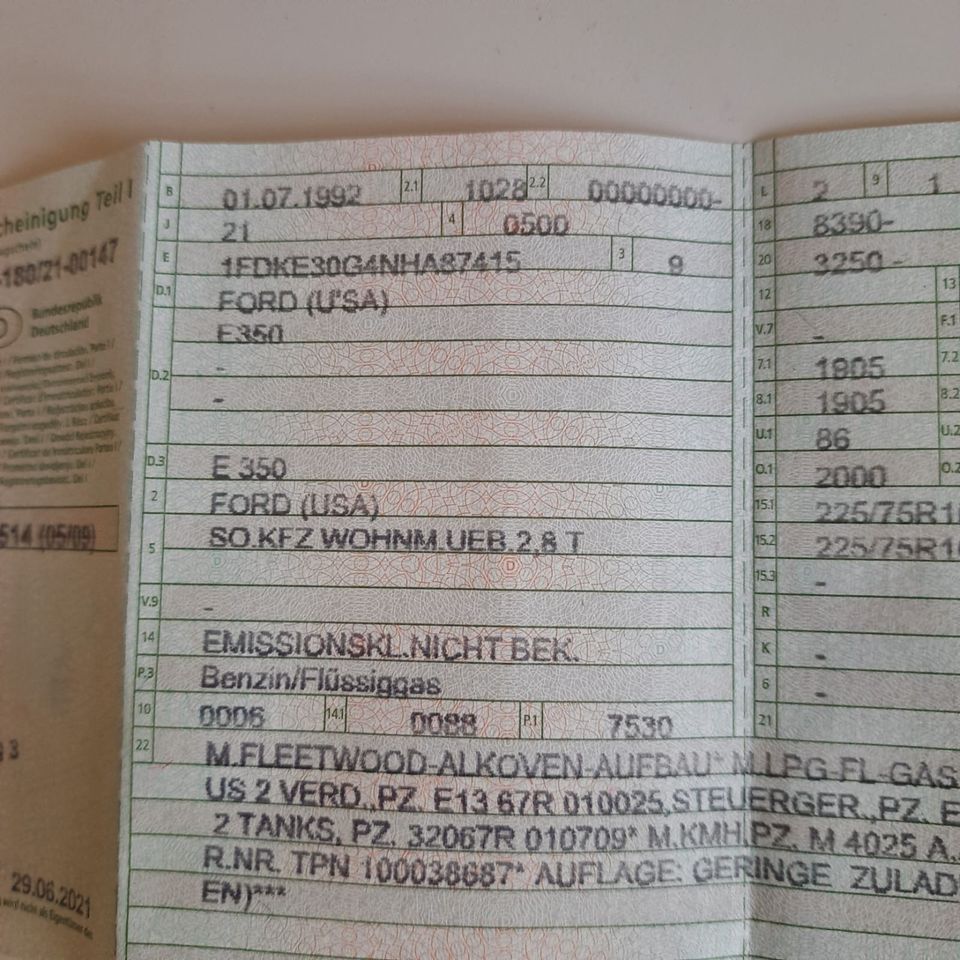 cheinigung Teil I
-180/21-00147
Bundesrepublik
Deutschland
514 (05/09)
g 3
29.06.2021
B 01.07.1992 2.1 1028 2.2 00000000-
J 21 4 0500
E 1FDKE30G4NHA87415 3 9
D.1 FORD (USA)
E350
D.2 -
-
D.3 E 350
2 FORD (USA)
5 SO.KFZ WOHNM.UEB.2,8 T
V.9 -
14 EMISSIONSKL.NICHT BEK.
P.3 Benzin/Flüssiggas
10 0006 14.1 0088 P.1 7530
22 M.FLEETWOOD-ALKOVEN-AUFBAU* M.LPG-FL-GAS
US 2 VERD.,PZ. E13 67R 010025,STEUERGER.,PZ. E
2 TANKS, PZ. 32067R 010709* M.KMH,PZ. M 4025 A.
R.NR. TPN 100038687* AUFLAGE: GERINGE ZULAD
EN)***
L 2 9 1
18 8390-
20 3250 -
12 13
V.7 - F.1
7.1 1905 7.2
8.1 1905 8.2
U.1 86 U.2
O.1 2000 O.2
15.1 225/75R1
15.2 225/75R1
15.3 -
R
K -
6 -
21